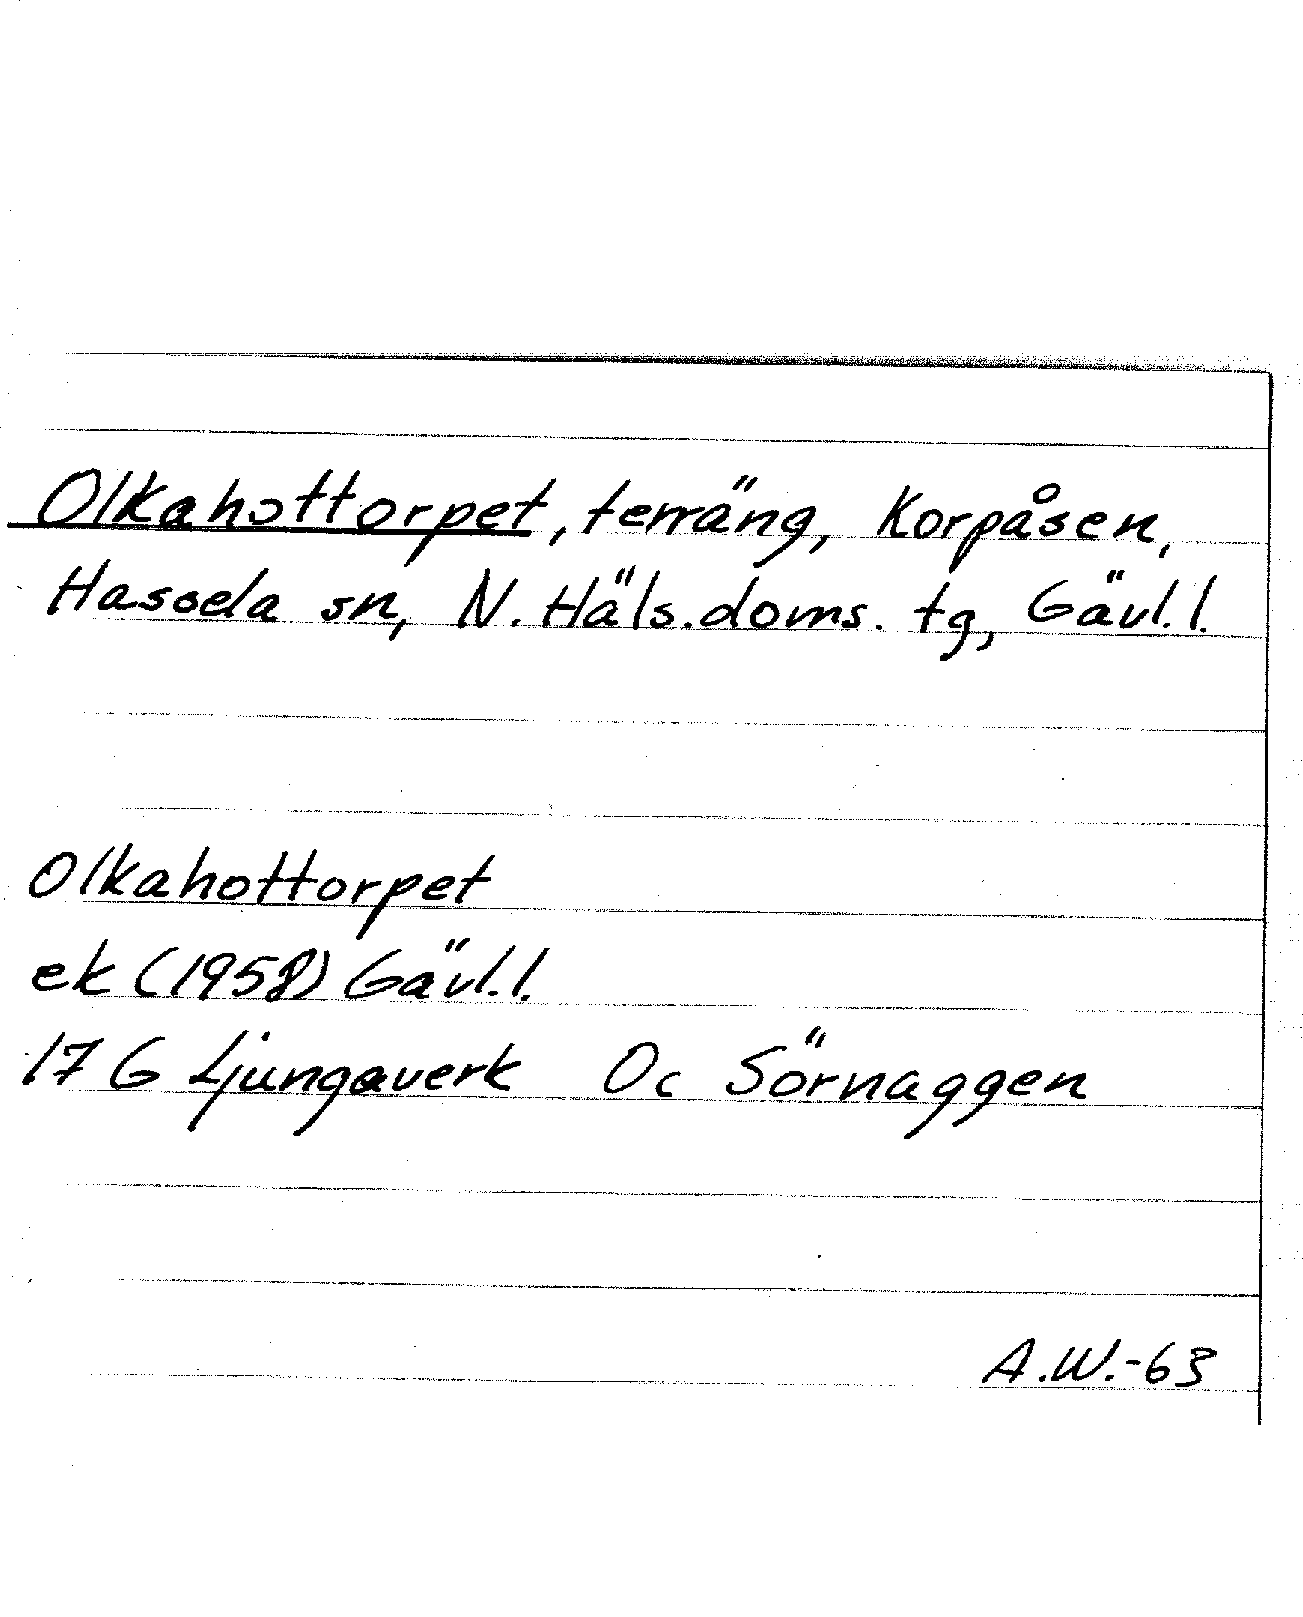 Olkahottorpet, terräng, Korpåsen,
Hassela sn, N. Häls. doms. tg, Gävl. l.
Olkahottorpet
ek (1958) Gävl. l.
17 G Ljungaverk Oc Sörnaggen
A.W.-63